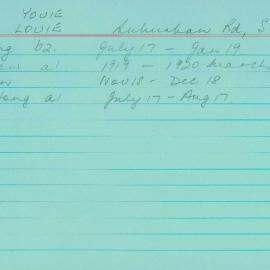 YOUIE
LOUIE Rd, S
ng b2. July 17 - Jan 19
al 1919 - 1920 March
n Nov 18 - Dec 18
ong al July 17 - Aug 17.